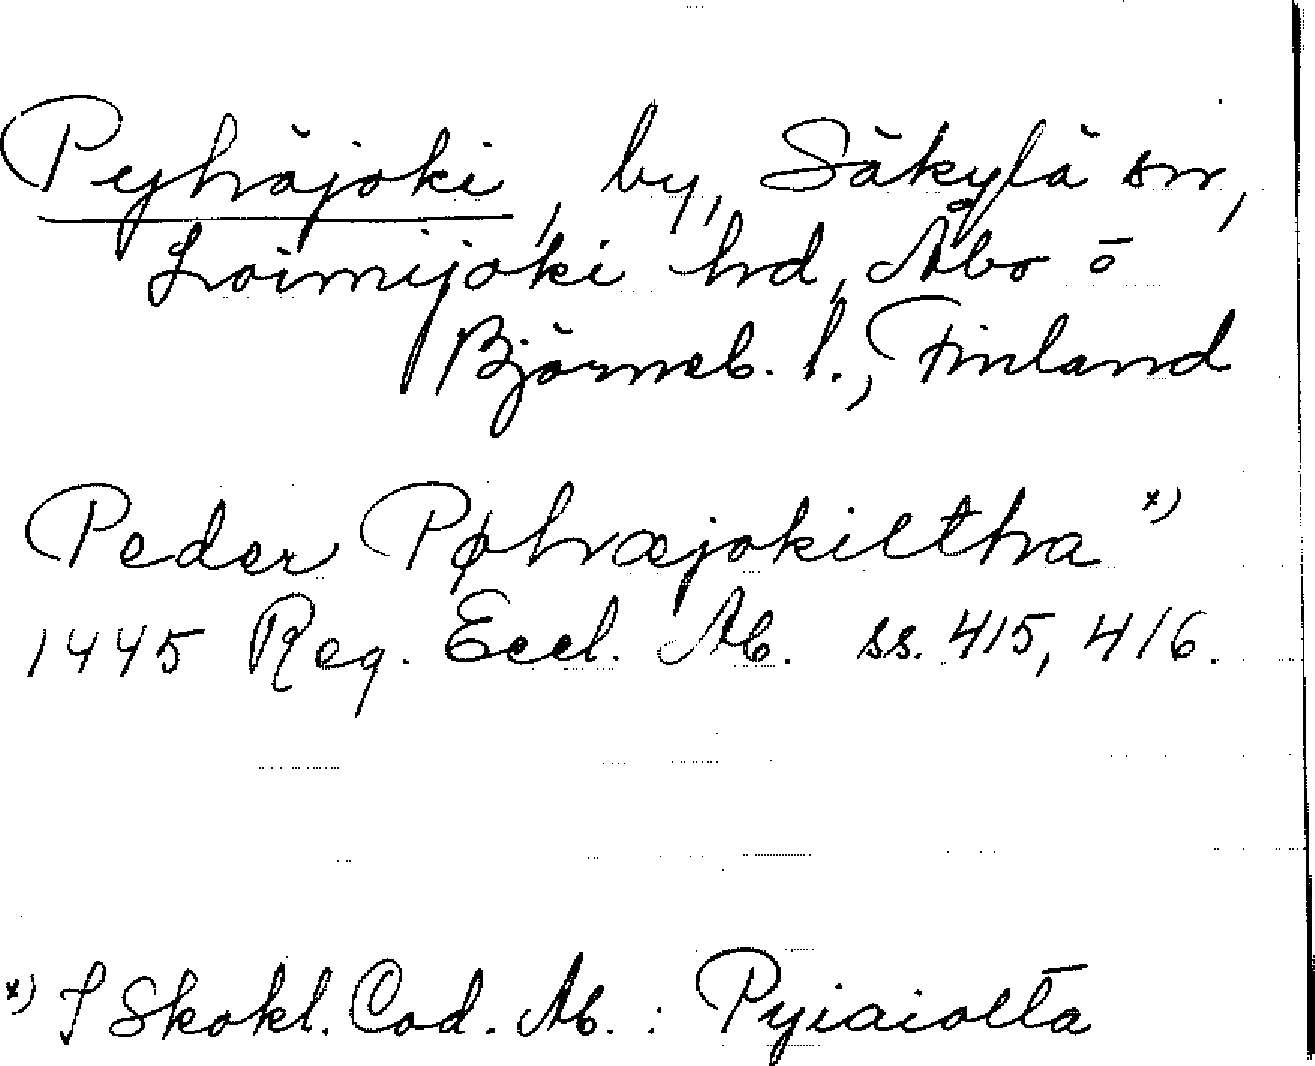 Pyhäjoki, by, Säkylä sn,
Loimijoki hd, Åbo o
Björneb. l., Finland
Peder Pøhæjokiltha *)
1445 Reg. Eccl. Ab. ss. 415, 416.
*) I Skokl. Cod. Ab. : Pyiaiolta